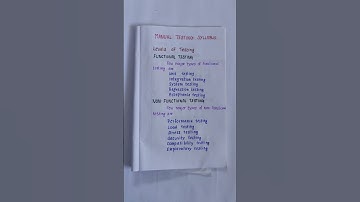 MANUAL TESTING SYLLABUS
Levels of Testing
FUNCTIONAL TESTING
The major types of functional
testing are
Unit testing
Integration testing
System testing
Regression testing
Acceptance testing
NON FUNCTIONAL TESTING
The major types of non functional
testing are
Performance testing
Load testing
Stress testing
Security testing
Compatibility testing
Exploratory testing